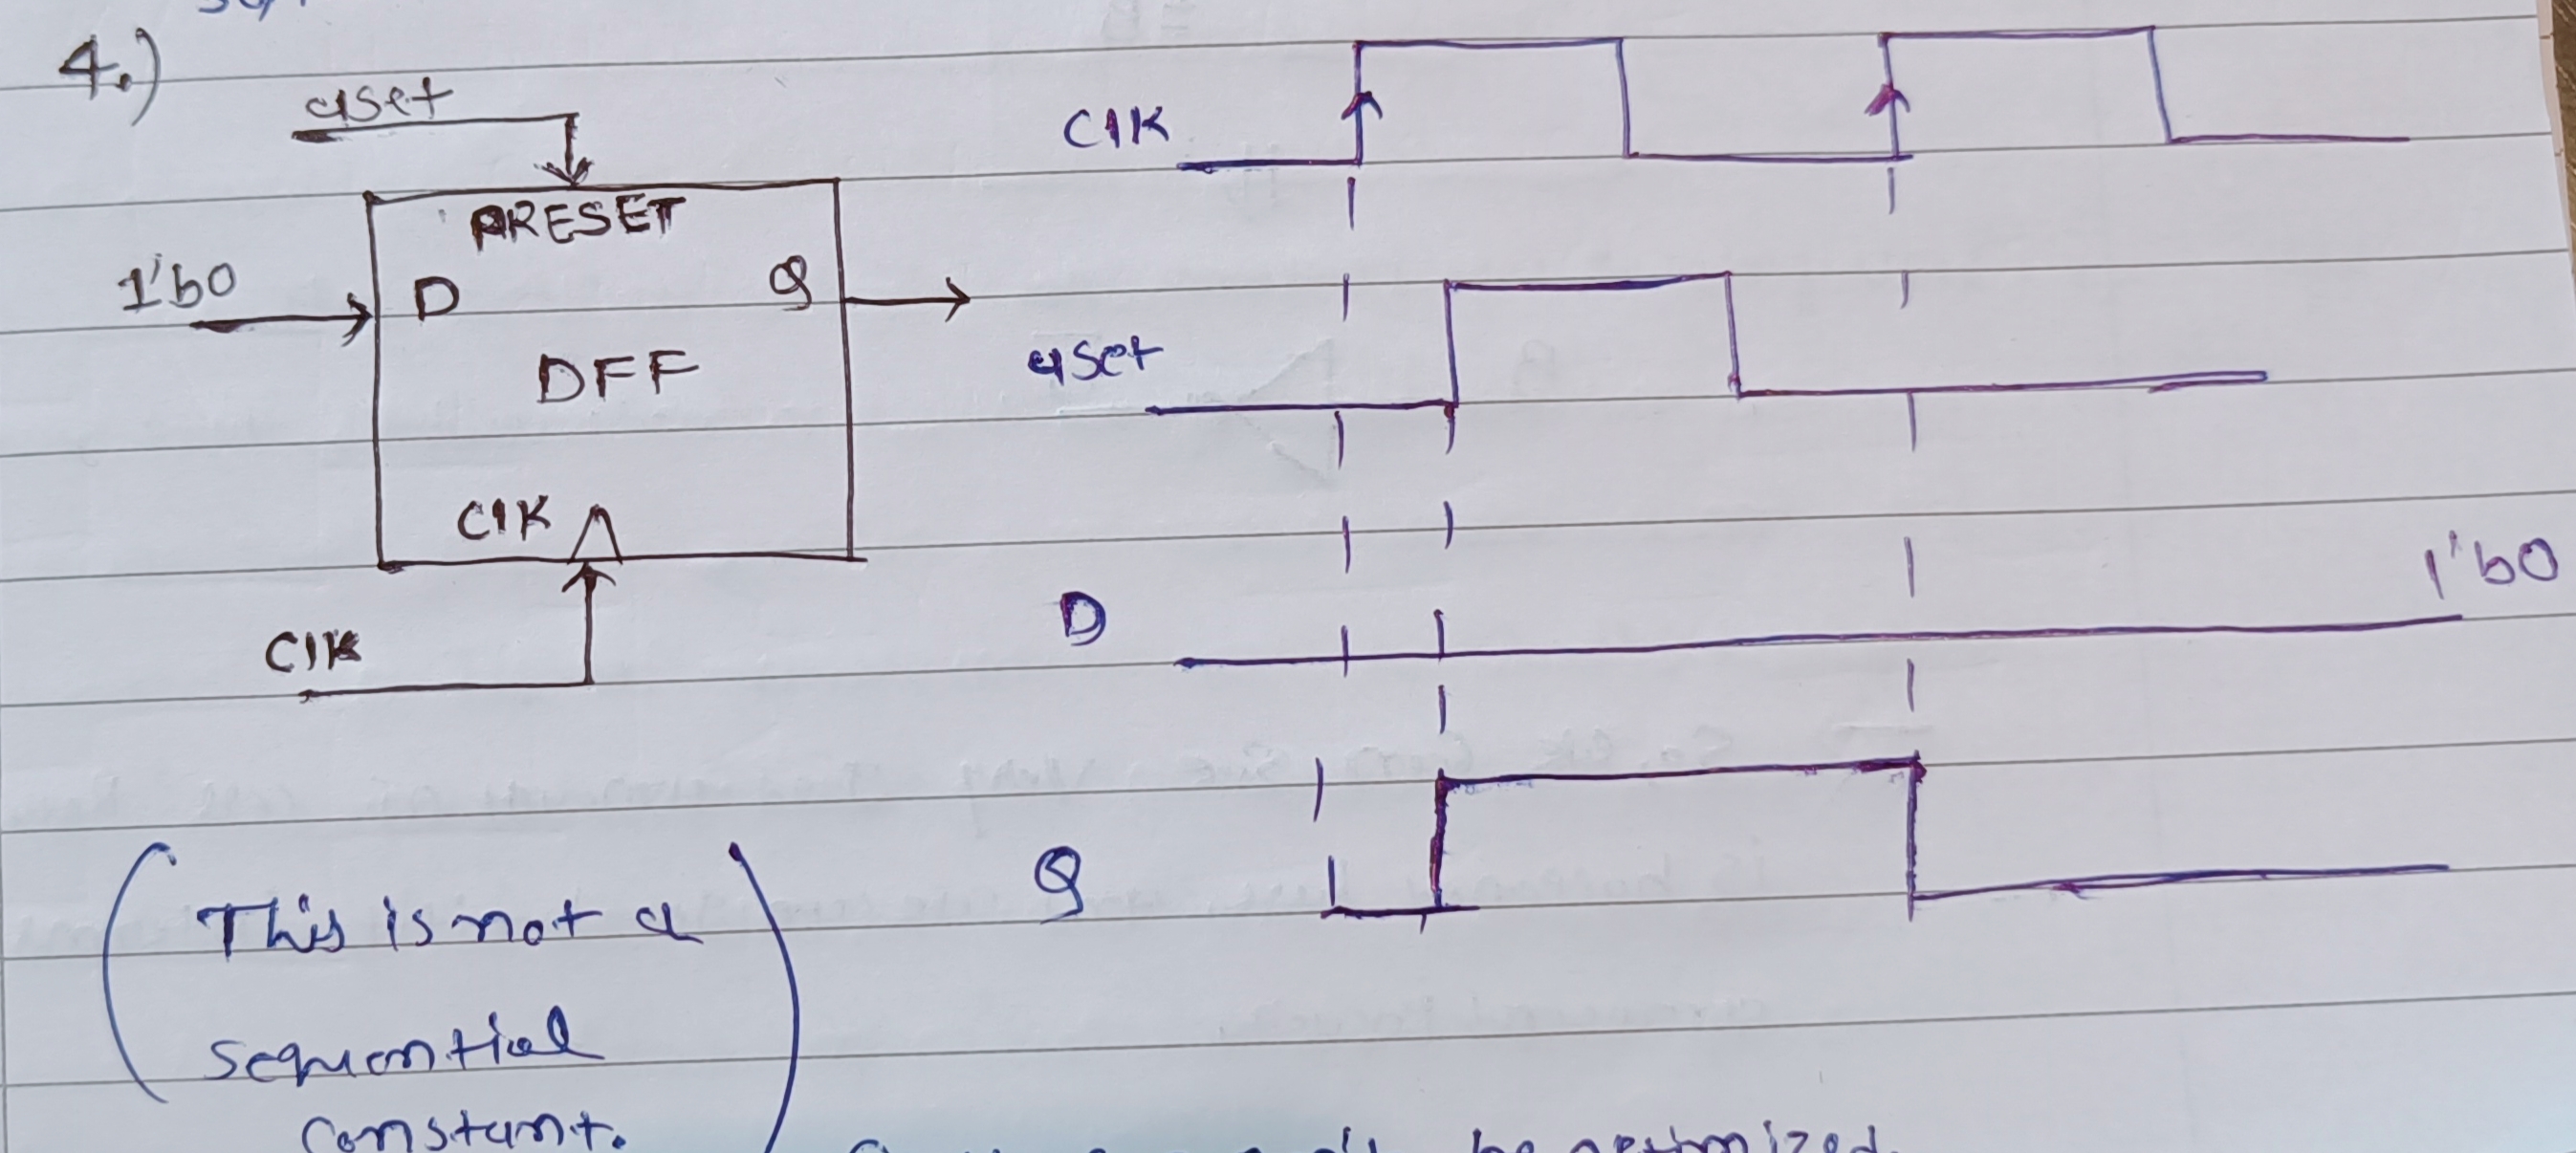 4.)
aset
PRESET
1'b0
D
Q
DFF
CIK
CIK
CIK
aset
D
1'b0
Q
This is not a
sequential
constant.
be optimized.